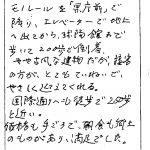 モノレールを「県庁前」で
降り、エレベーターで地上
へ出てから、球陽館まで
歩いて200歩で到着。
やや古風な建物だが、接客
の方が、とてもていねいで、
やさしく迎えてくれる。
国際通りへも徒歩で250歩
と近い。
価格も手ごろで、朝食も郷土
のものがあり、満足でした。